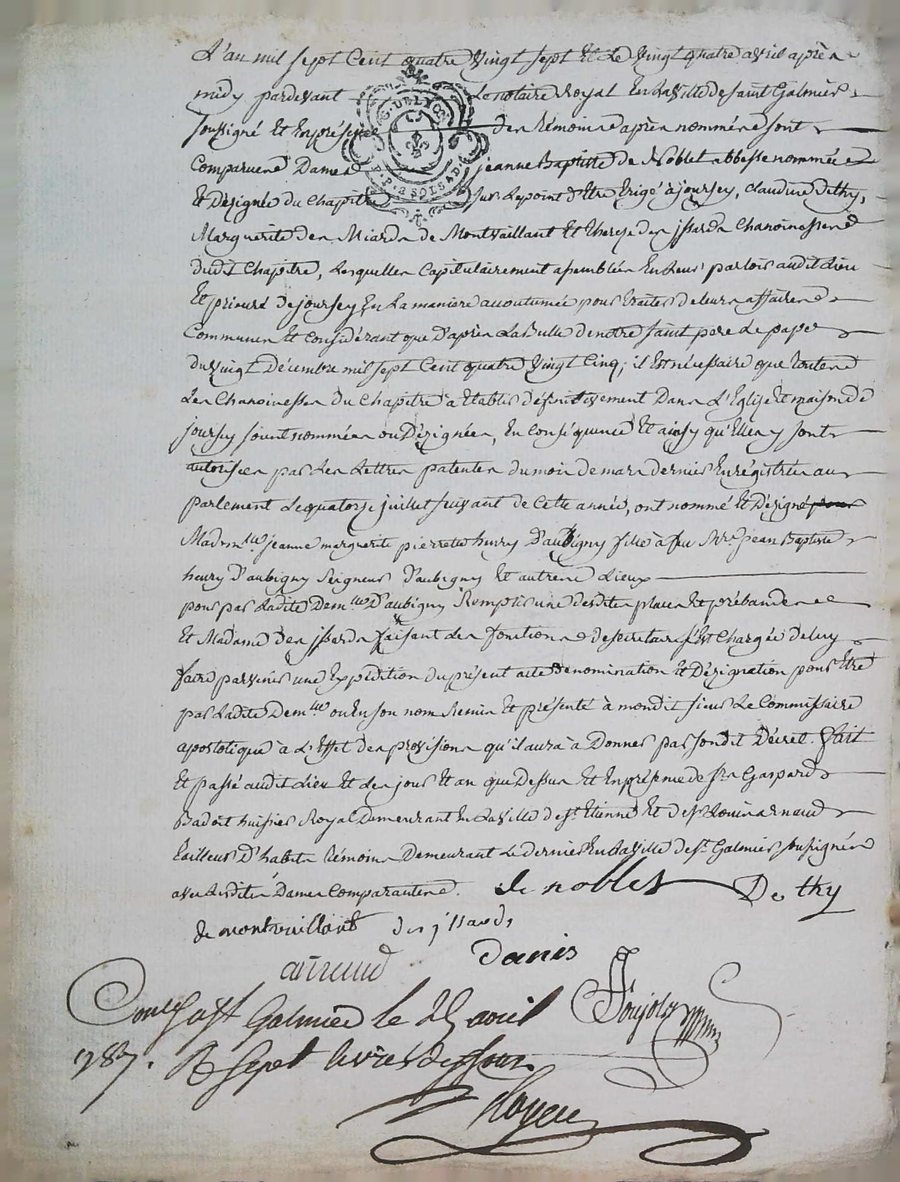 L'an mil sept Cent quatre vingt sept Et Le vingt quatre avril après
midy pardevant Le notaire Royal En La ville de saint Galmier
soussigné Et En présence des témoins après nommés sont
Comparues Dames jeanne Baptiste de Noblet abbesse nommée
Et Désignée du Chapitre sur Le point d'Etre Erigé à joursey, claudine dethy,
Marguerite des Miards de Montvaillant Et therese des jssards Chanoinesses
dudit Chapitre, Lesquelles Capitulairement assemblées En Leur parloir audit Lieu
Et prieuré de joursey En La maniere accoutumée pour traiter de leurs affaires
Communes Et Considérant que D'après La Bulle de notre saint pere Le pape
du vingt Décembre mil sept Cent quatre vingt Cinq; il Est nécessaire que toutes
Les Chanoinesses du Chapitre à Etablir définitivement Dans L'Eglise Et maison de
joursey soient nommées ou Dézignées, En Conséquence Et ainsy qu'Elles y sont
autorisées par Les Lettres patentes du mois de mars dernier Enrégistrées au
parlement Le quatorze juillet suivant de Cette année, ont nommé Et Dézigné pour
Madem.lle jeanne marguerite pierrette henry D'aubigny fille à feu Mr. jean Baptiste
henry D'aubigny Seigneur D'aubigny Et autres Lieux
pour par Ladite Dem.lle D'aubigny Remplir une desdites places Et prébandes
Et Madame des jssards faisant Les fonctions de secretaire s'Est Chargée de luy
faire parvenir une Expédition du présent acte de nomination Et Dézignation pour Etre
par Ladite Dem.lle ou En son nom Remis Et présenté à mondit sieur Le Commissaire
apostolique à L'Effet des provisions qu'il aura à Donner par sondit Décret. fait
Et passé audit Lieu Et Les jour Et an que Dessus Et En présence de sr. Gaspard
Badoit huissier Royal Demeurant En La ville de st. Etienne Et de sr. Louis arnaud
tailleur D'habits témoins Demeurant Le dernier En La ville de st. Galmier soussignés
avec Lesdites Dames Comparantes. de noblet De thy
de montvaillant des jssards
arnaud
Conllé a st Galmier le 25 avril
1787. R sept livres dix sous
G. DE LYON